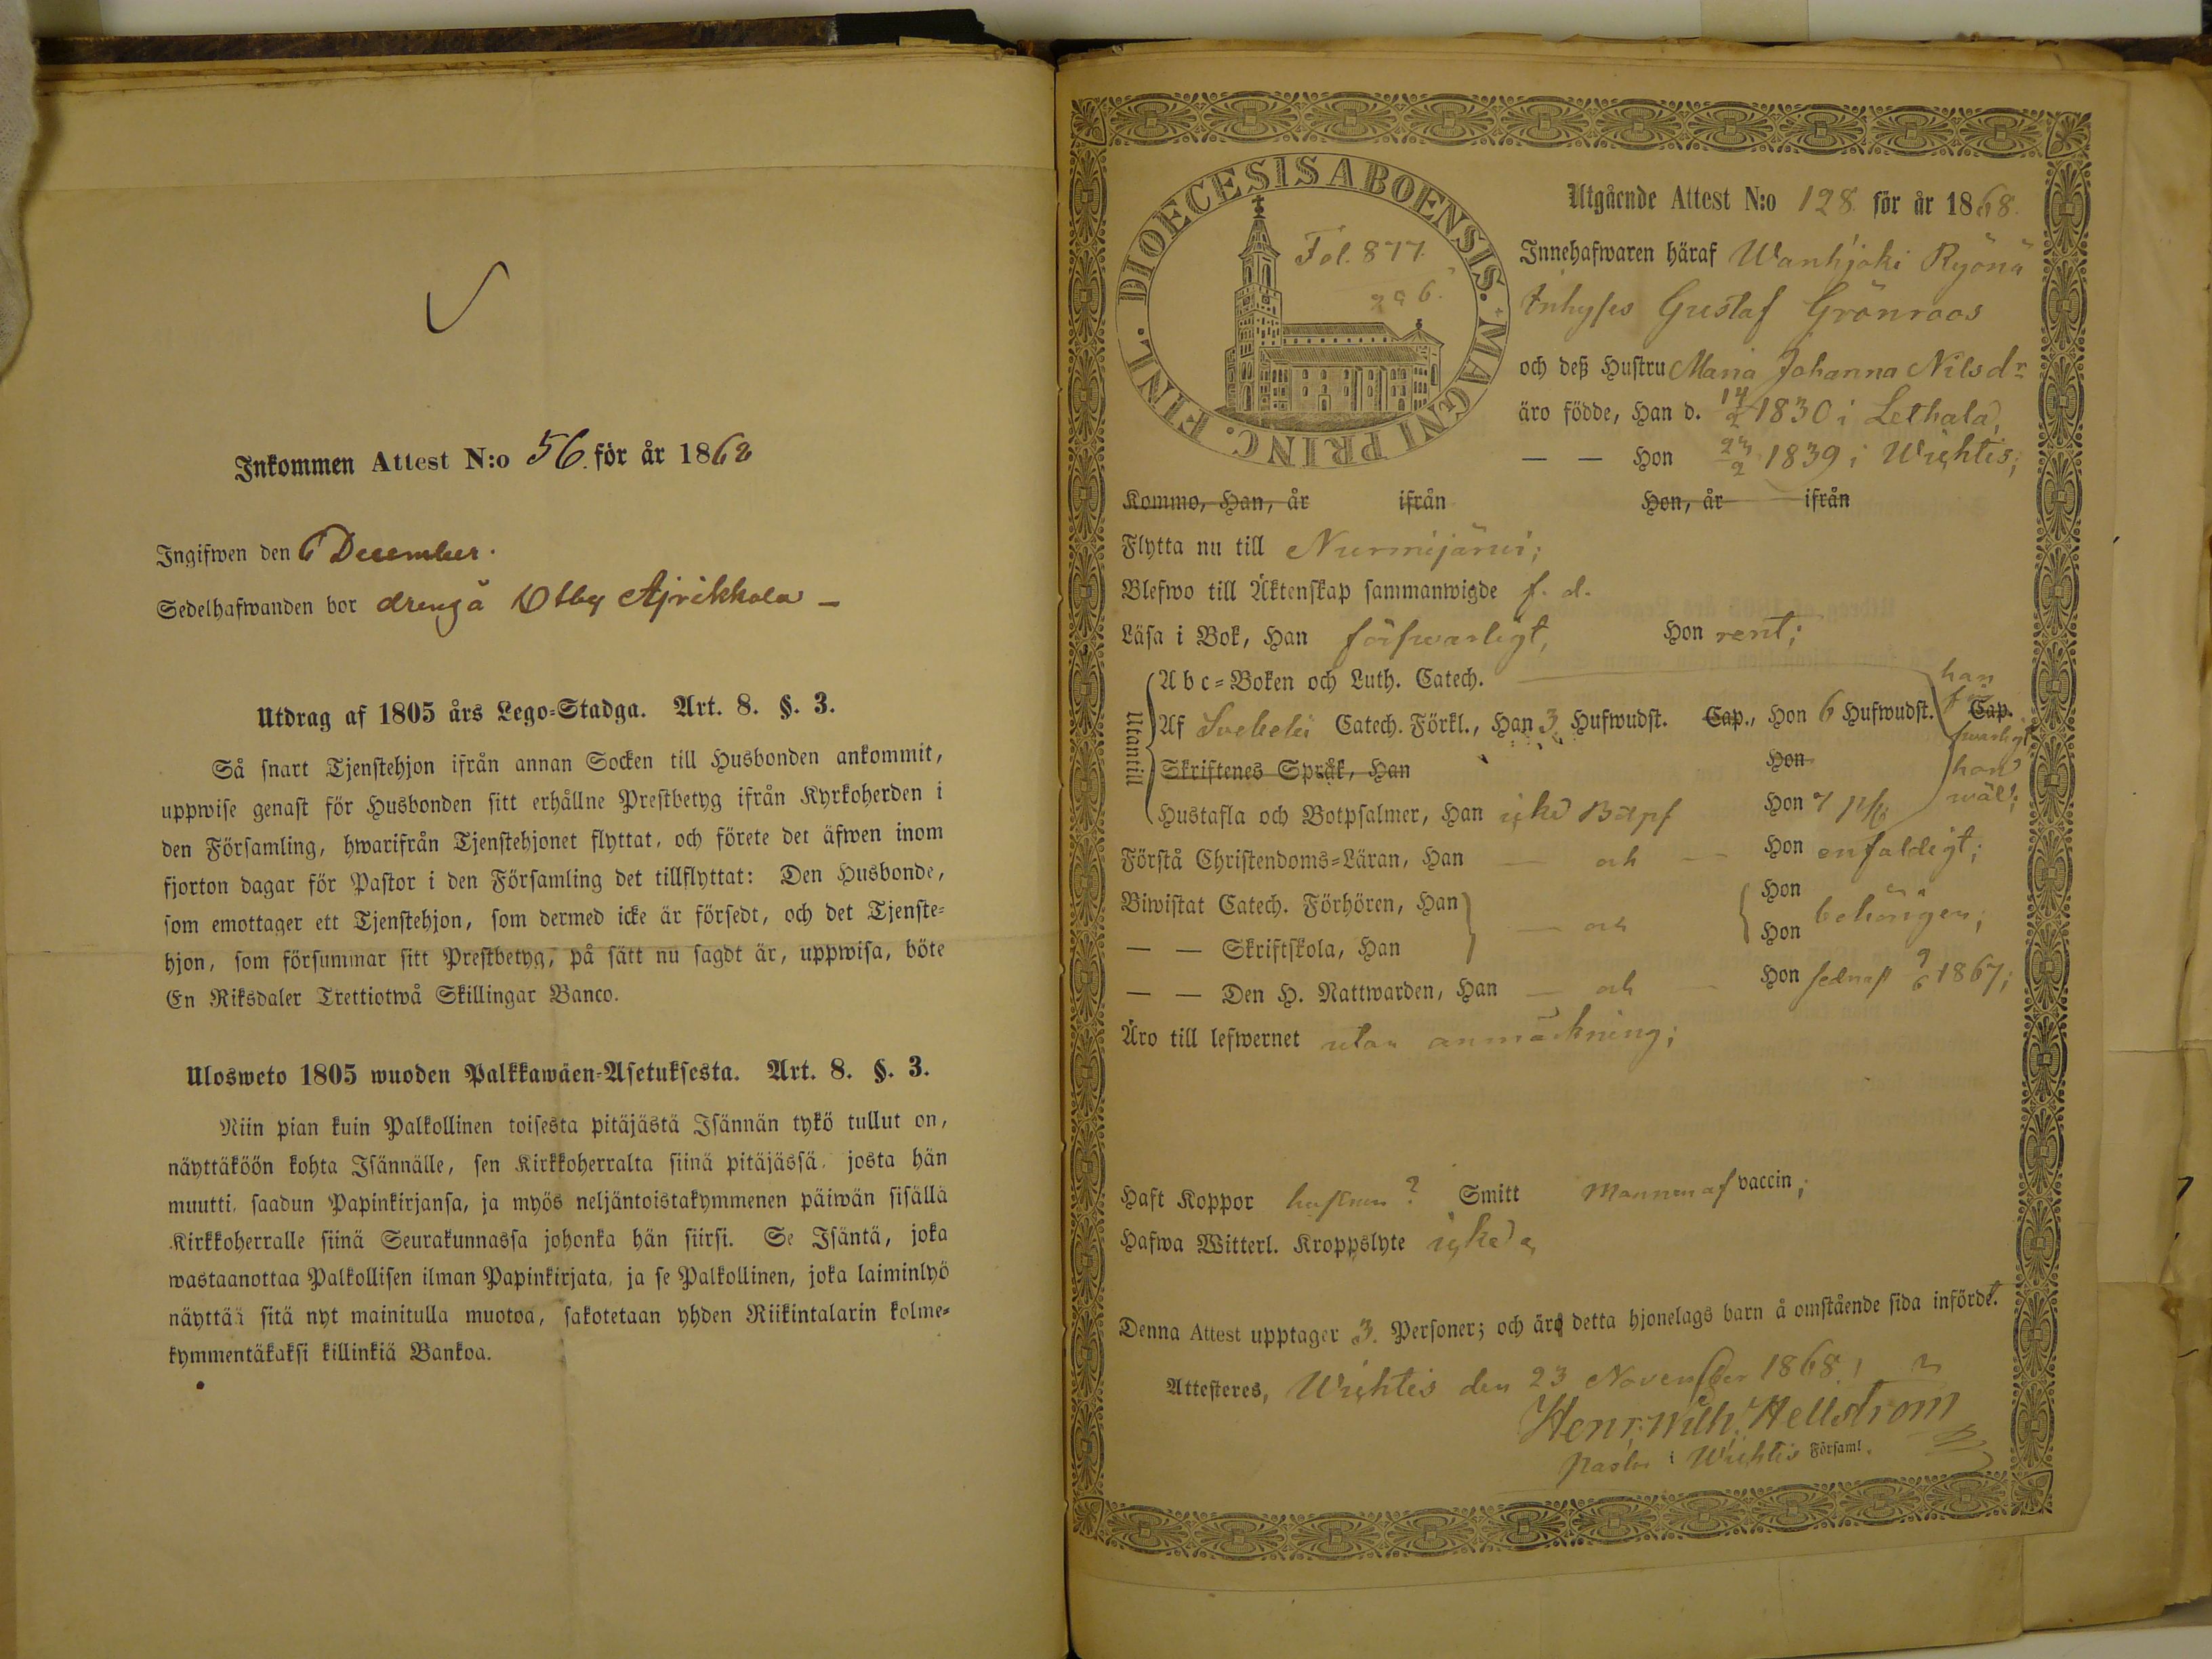 Inkommen Attest N:o 56. för år 1868
Ingifwen den 6 December.
Sedelhafwanden bor dreng å Otby
Utdrag af 1805 års Lego-Stadga. Art. 8. §. 3.
Så snart Tjenstehjon ifrån annan Socken till Husbonden ankommit,
uppwise genast för Husbonden sitt erhållne Prestbetyg ifrån Kyrkoherden i
den Församling, hwarifrån Tjenstehjonet flyttat, och förete det äfwen inom
fjorton dagar för Pastor i den Församling det tillflyttat: Den Husbonde,
som emottager ett Tjenstehjon, som dermed icke är försedt, och det Tjenste-
hjon, som försummar sitt Prestbetyg, på sätt nu sagdt är, uppwisa, böte
En Riksdaler Trettiotwå Skillingar Banco.
Ulosweto 1805 wuoden Palkkawäen-Asetuksesta. Art. 8. §. 3.
Niin pian kuin Palkollinen toisesta pitäjästä Isännän tykö tullut on,
näyttäköön kohta Isännälle, sen Kirkkoherralta siinä pitäjässä, josta hän
muutti, saadun Papinkirjansa, ja myös neljäntoistakymmenen päiwän sisällä
Kirkkoherralle siinä Seurakunnassa johonka hän siirsi. Se Isäntä, joka
wastaanottaa Palkollisen ilman Papinkirjata, ja se Palkollinen, joka laiminlyö
näyttää sitä nyt mainitulla muotoa, sakotetaan yhden Riikintalarin kolme-
kymmentäkaksi killinkiä Bankoa.
DIOECESIS ABOENSIS. MAGNI PRINC. FINL.
Fol. 877.
296.
Utgående Attest N:o 128. för år 1868.
Innehafwaren häraf Wanhjoki Ryönä
Inhyses Gustaf Grönroos
och deß Hustru Maria Johanna Nilsdr
äro födde, Han d. 14/2 1830 i Lethala,
— — Hon 23/2 1839 i Wichtis;
Kommo, Han, år ifrån Hon, år ifrån
Flytta nu till Nurmijärvi;
Blefwo till Äktenskap sammanwigde f. d.
Läsa i Bok, Han förswarligt, Hon rent;
Utantill
Abc-Boken och Luth. Catech. han
Af Svebelii Catech. Förkl., Han 3 Hufwudst. Cap., Hon 6 Hufwudst. Cap. för
swarligt
Skriftenes Språk, Han Hon hon
Hustafla och Botpsalmer, Han icke Botps Hon 7 ps; wäl;
Förstå Christendoms-Läran, Han — och — Hon enfaldigt;
Biwistat Catech. Förhören, Han — och Hon behörigen;
— — Skriftskola, Han Hon
— — Den H. Nattwarden, Han — och — Hon sednast 9/6 1867;
Äro till lefwernet utan anmärkning;
Haft Koppor hustrun? Smitt Mannen af vaccin;
Hafwa Witterl. Kroppslyte icke
Denna Attest upptager 3. Personer; och äro detta hjonelags barn å omstående sida införde.
Attesteres, Wichtis den 23 November 1868.
Henr. Wilh. Hellström
Pastor i Wichtis Församl.